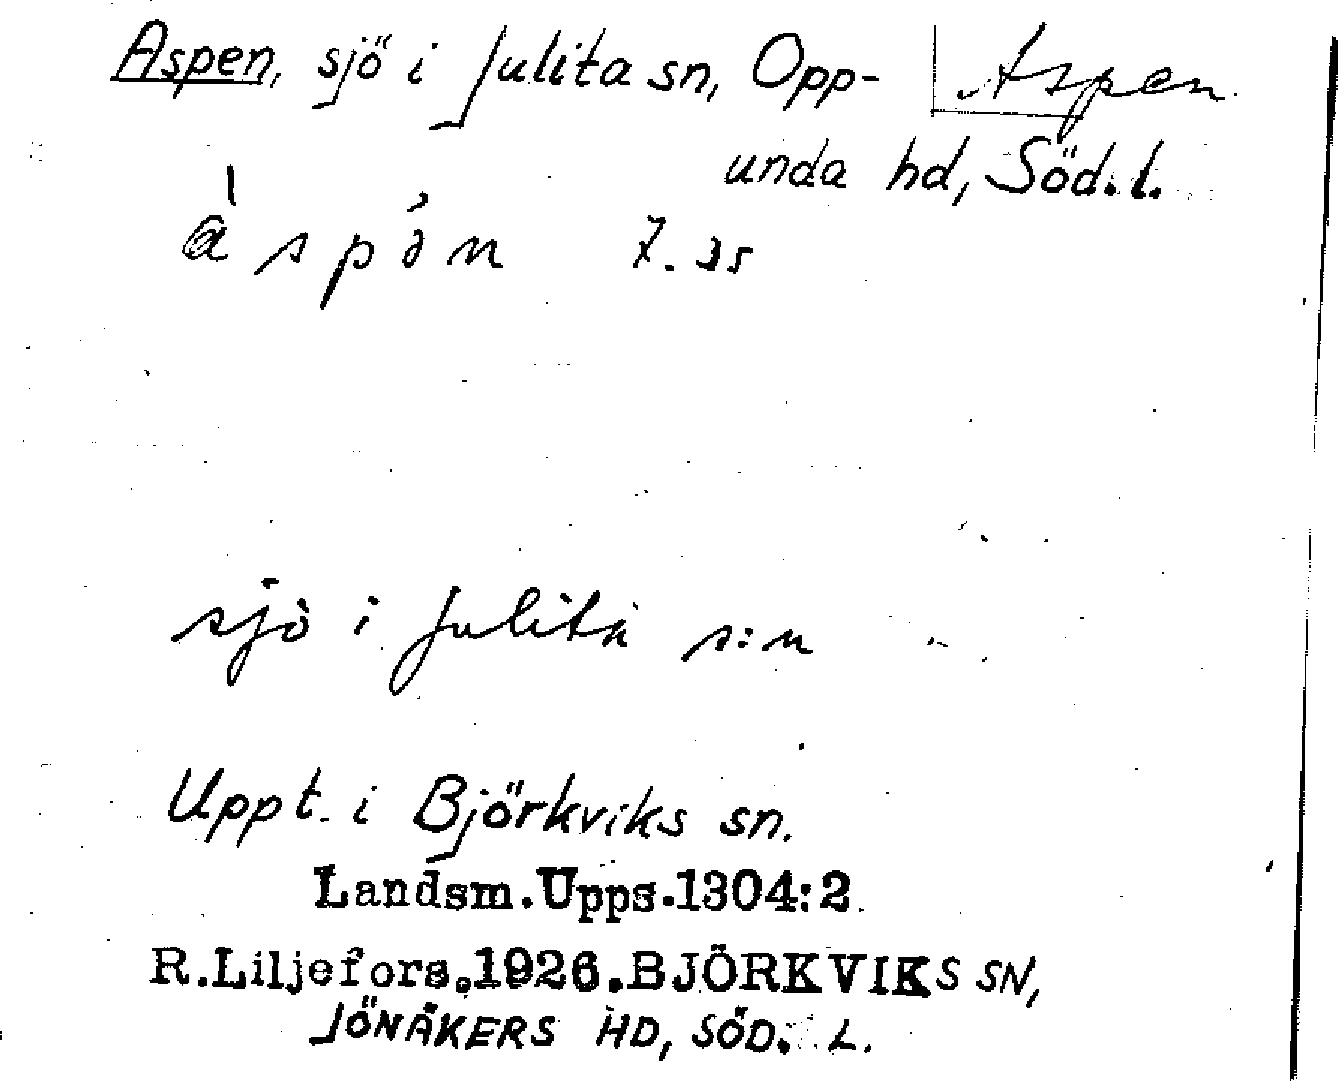 Aspen, sjö i Julita sn, Opp-
unda hd, Söd. l.
Aspen
sjö i Julita s:n
Uppt. i Björkviks sn.
Landsm.Upps.1304:2.
R.Liljefors.1926.BJÖRKVIKS SN,
JÖNÅKERS HD, SÖD. L.